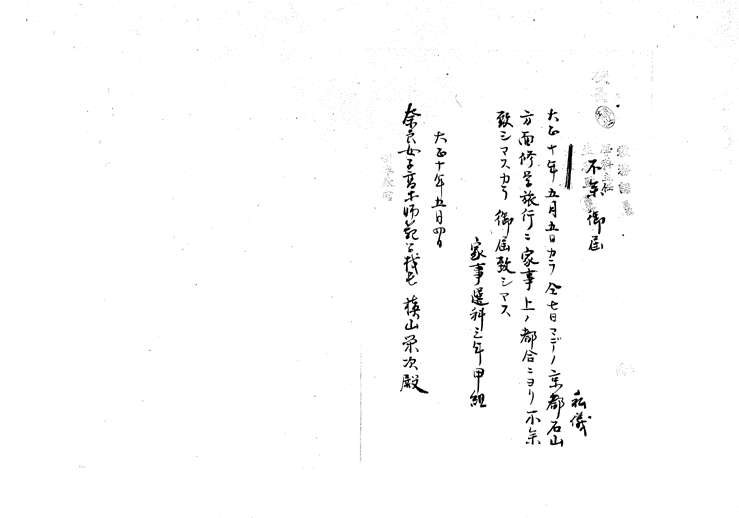 不参御届
私儀
大正十年五月五日カラ仝七日マデノ京都石山
方面修学旅行ニ家事上ノ都合ニヨリ不参
致シマスカラ御届致シマス
家事選科三年甲組
大正十年五月四日
奈良女子高等師範学校長 槙山栄次殿